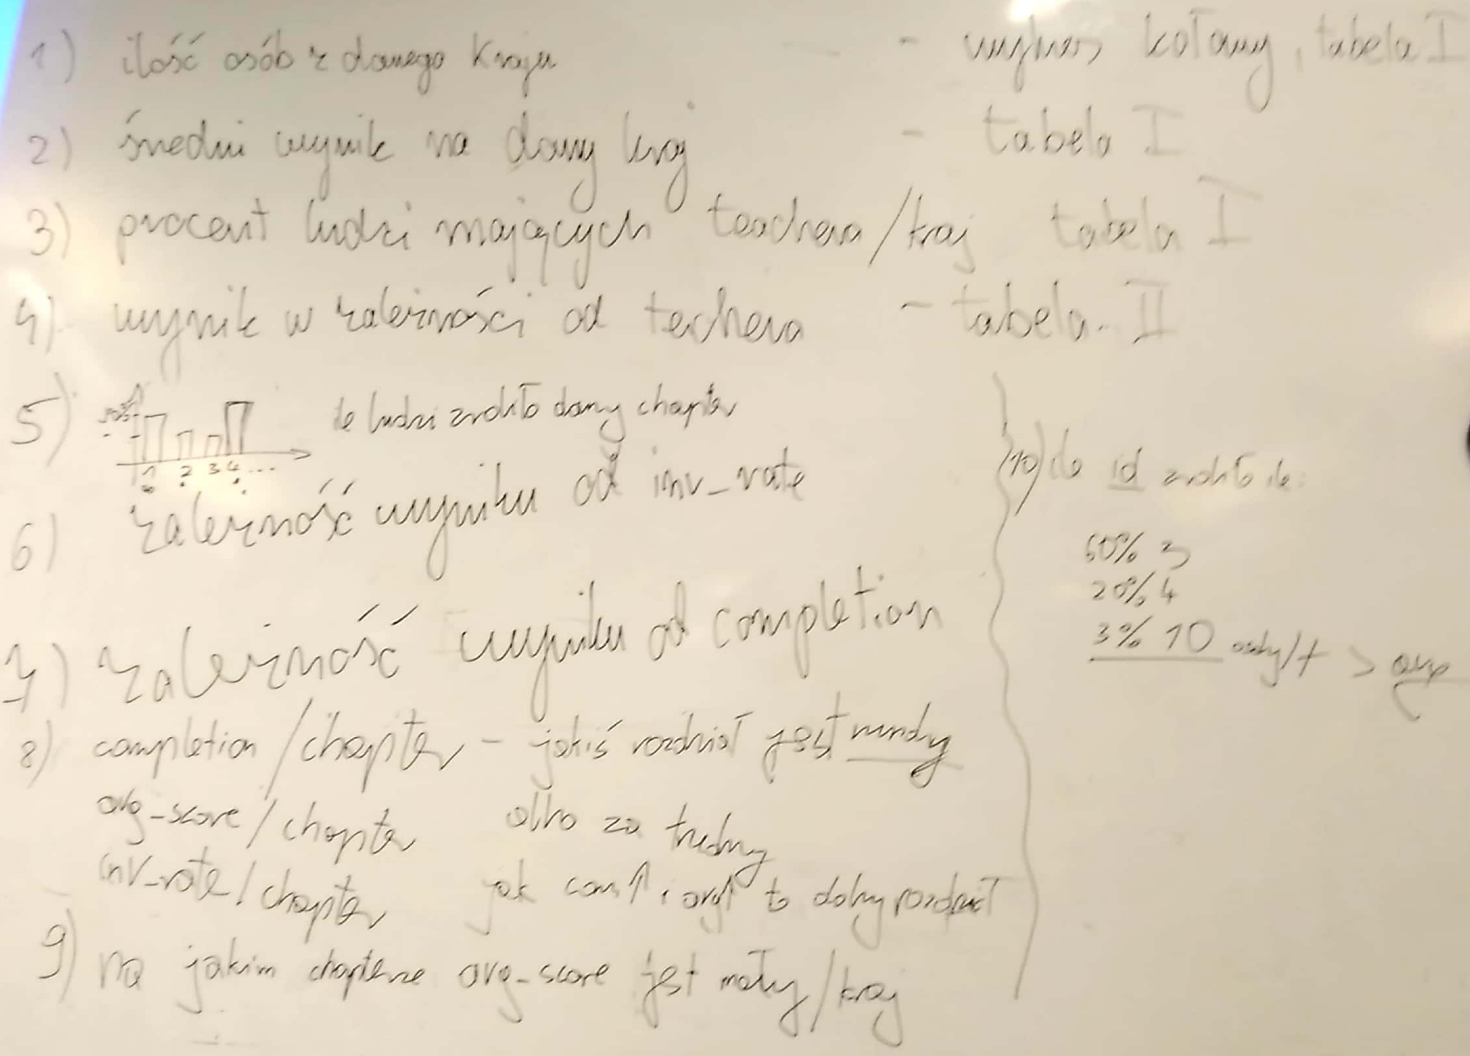 1) ilość osób z danego kraju - wykres kołowy, tabela I
2) średni wynik na dany kraj - tabela I
3) procent ludzi mających teachera/kraj tabela I
4) wynik w zależności od techera - tabela II
5) ile ludzi zrobiło dany chapter
1 2 3 4 ...
6) zależność wyniku od inv_rate
7) zależność wyniku od completion
8) completion/chapter - jakiś rozdział jest nudny
avg-score/chapter albo za trudny
inv_rate/chapter jak com↑ i avg↑ to dobry rozdział
9) na jakim chapterze avg-score jest mały/kraj
10) ile id zrobiło ile:
60% 3
20% 4
3% 10 >